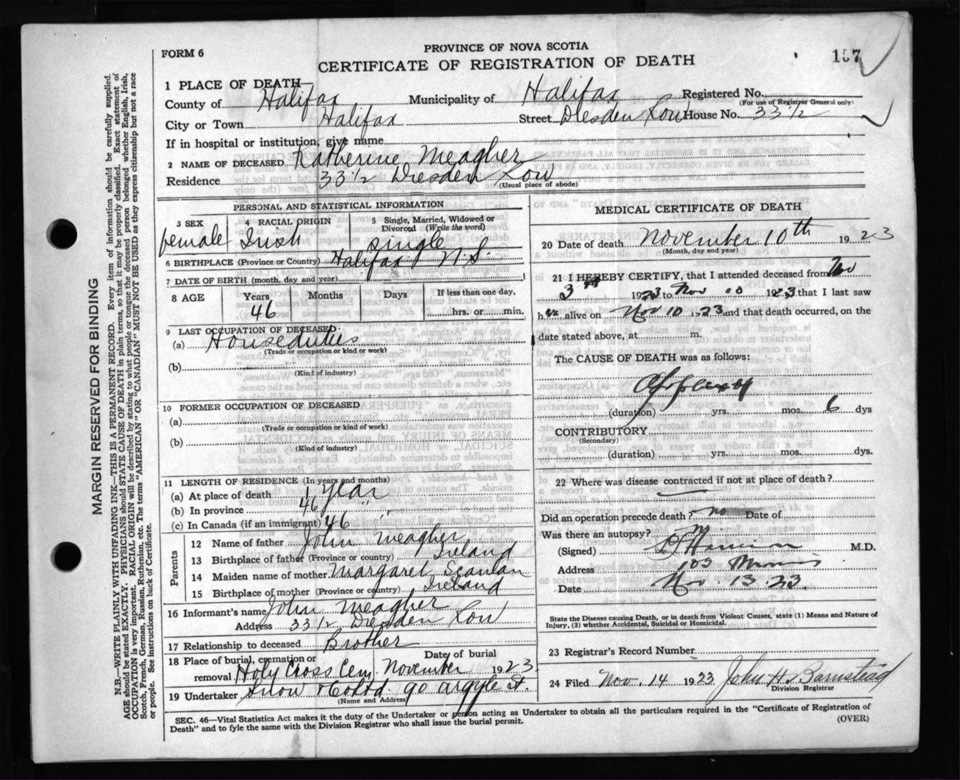 FORM 6
PROVINCE OF NOVA SCOTIA
CERTIFICATE OF REGISTRATION OF DEATH
157
1 PLACE OF DEATH—
County of Halifax Municipality of Halifax Registered No.
(For use of Registrar General only)
City or Town Halifax Street Dresden Row House No. 33 1/2
If in hospital or institution, give name
2 NAME OF DECEASED Katherine Meagher
Residence 33 1/2 Dresden Row
(Usual place of abode)
PERSONAL AND STATISTICAL INFORMATION
3 SEX 4 RACIAL ORIGIN 5 Single, Married, Widowed or Divorced (Write the word)
female Irish single
6 BIRTHPLACE (Province or Country) Halifax N.S.
7 DATE OF BIRTH (month, day and year)
8 AGE Years Months Days If less than one day,
46 hrs. or min.
9 LAST OCCUPATION OF DECEASED
(a) Houseduties
(Trade or occupation or kind or work)
(b)
(Kind of industry)
10 FORMER OCCUPATION OF DECEASED
(a)
(Trade or occupation or kind of work)
(b)
(Kind of industry)
11 LENGTH OF RESIDENCE (In years and months)
(a) At place of death 1 year
(b) In province 46 "
(c) In Canada (if an immigrant) 46 "
Parents
12 Name of father John Meagher
13 Birthplace of father (Province or country) Ireland
14 Maiden name of mother Margaret Scanlan
15 Birthplace of mother (Province or country) Ireland
16 Informant's name John Meagher
Address 33 1/2 Dresden Row
17 Relationship to deceased Brother
18 Place of burial, cremation or removal Holy Cross Cem. Date of burial November 1923
19 Undertaker Snow & Co Ltd. 90 Argyle St.
(Name and Address)
MEDICAL CERTIFICATE OF DEATH
20 Date of death November 10th 1923
(Month, day and year)
21 I HEREBY CERTIFY, that I attended deceased from Nov
3 1923 to Nov 10 1923 that I last saw
h alive on Nov 10 1923 and that death occurred, on
date stated above, at m.
The CAUSE OF DEATH was as follows:
Apoplexy
(duration) yrs. mos. 6 dys
CONTRIBUTORY
(Secondary)
(duration) yrs. mos. dys.
22 Where was disease contracted if not at place of death?
Did an operation precede death? no Date of
Was there an autopsy?
(Signed) M.D.
Address 103 Morris
Date Nov. 13. 23
State the Disease causing Death, or in death from Violent Causes, state (1) Means and Nature of
Injury, (2) whether Accidental, Suicidal or Homicidal.
23 Registrar's Record Number
24 Filed Nov. 14 1923 John H. Barnstead
Division Registrar
SEC. 46—Vital Statistics Act makes it the duty of the Undertaker or person acting as Undertaker to obtain all the particulars required in the "Certificate of Registration of
Death" and to fyle the same with the Division Registrar who shall issue the burial permit.
(OVER)
MARGIN RESERVED FOR BINDING
N.B.—WRITE PLAINLY WITH UNFADING INK—THIS IS A PERMANENT RECORD. Every item of information should be carefully supplied.
AGE should be stated EXACTLY. PHYSICIANS should STATE CAUSE OF DEATH in plain terms, so that it may be properly classified. Exact statement of
OCCUPATION is very important. RACIAL ORIGIN will be described by stating to what people or tongue the deceased person belonged whether English, Irish,
Scotch, French, German, Russian, Ruthenian, etc. The terms "AMERICAN" OR "CANADIAN" MUST NOT BE USED as they express citizenship but not a race
or people. See instructions on back of Certificate.